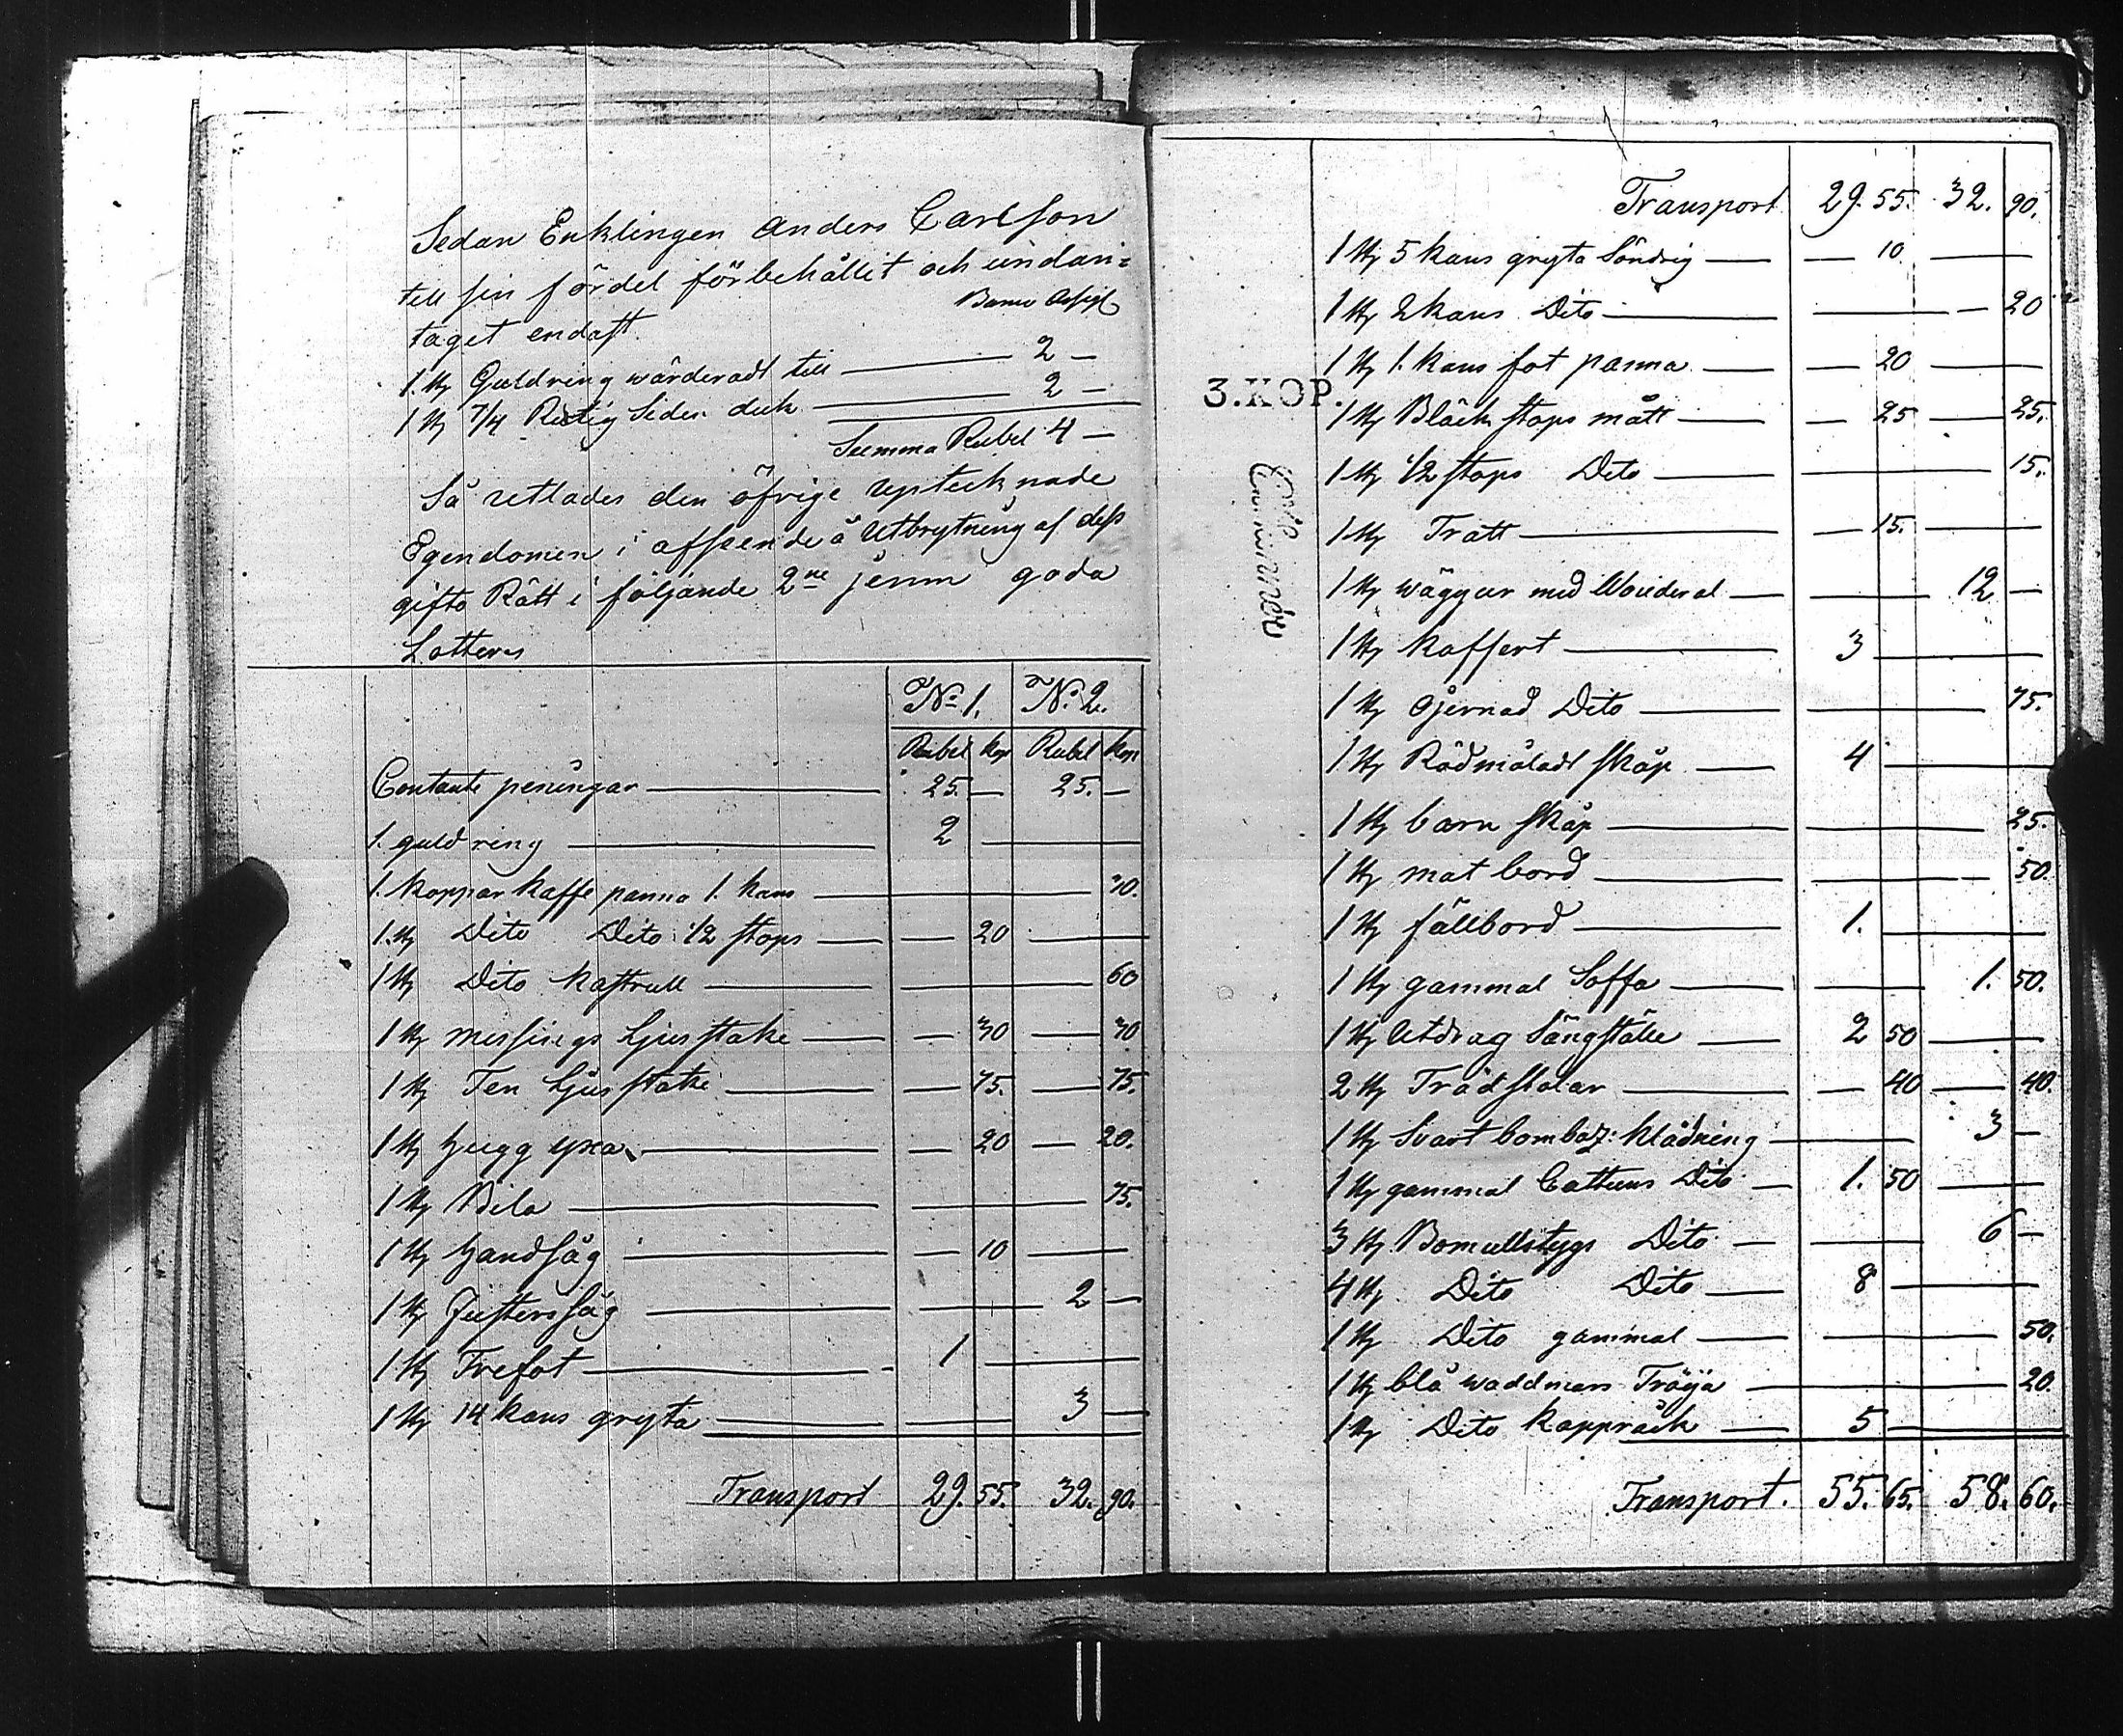 Sedan Enklingen Anders Carlsson
till sin fördel förbehållit och undan=
taget endast. Banco Assigt
1. st Guldring wärderadt till 2 —
1 st 7/4 Rutig Siden duk 2 —
Summa Rubel 4 —
Så utlades den öfrige upteck nade
Egendomen i afseende å Utbrytning af dess
gifto Rätt i följande 2ne jemn goda
Lotter
No 1. No 2.
Rubel kop Rubel kop
Contante peningar 25. — 25. —
1. guld ring 2
1. koppar kaffe panna 1. kans 30.
1. st Dito Dito 1/2 stops 20
1 st Dito kastrull 60
1 st messings Ljusstake 30 30
1 st Ten Ljusstake 75. 75.
1 st hugg yxa 20 20.
1 st Bila 75.
1 st handsåg 10
1 st Justersåg 2 —
1 st Trefot 1
1 st 14 kans gryta 3 —
Transport 29. 55. 32. 90.
Transport 29. 55. 32. 90.
1 st 5 kans gryta Söndrig 10
1 st 2 kans Dito 20
1 st 1. kans fot panna 20
3.KOP.
1 st Bläck stops mått 25 25.
1 st 1/2 stops Dito 15.
1 st Tratt 15.
1 st wäggur med foderal 12 —
1 st koffert 3
1 st Gjernad Dito 75.
1 st Rödmåladt skåp 4
1 st barn skåp 25.
1 st mat bord 50.
1 st fällbord 1.
1 st gammal Soffa 1. 50.
1 st Utdrag Sängställe 2 50
2 st Träd stolar 40 40.
1 st Svart bombaz: klädning 3 —
1 st gammal Cattuns Dito 1. 50
3 st Bomullstygs Dito 6 —
4 st Dito Dito 8
1 st Dito gammal 50.
1 st blå waddmars Tröija 20.
1 st Dito kappråck 5
Transport. 55. 65. 58. 60.